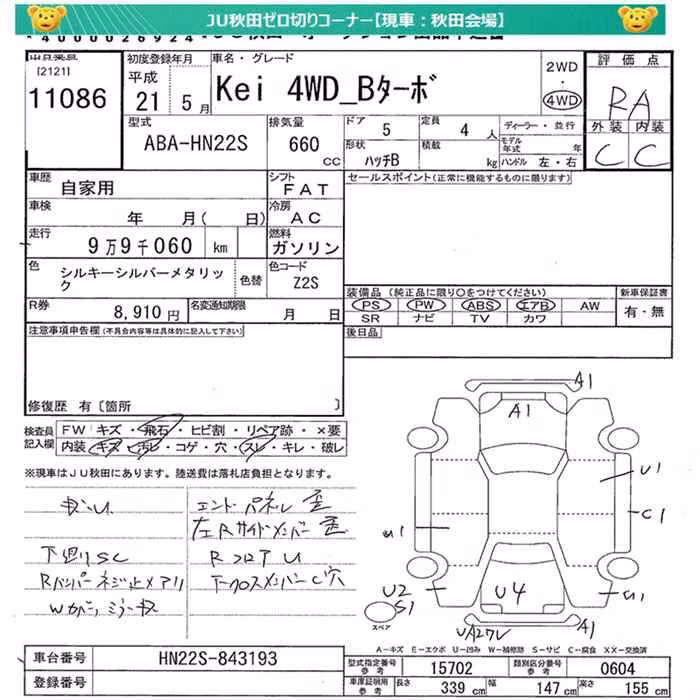 JU秋田ゼロ切りコーナー【現車：秋田会場】
出品番号
[2121]
11086
初度登録年月
平成
21年 5月
車名・グレード
Kei 4WD_Bターボ
2WD
・
4WD
評価点
RA
外装 内装
C C
型式
ABA-HN22S
排気量
660
CC
ドア 5
定員 4人
ディーラー・並行
形状
ハッチB
積載 kg
モデル年式 年
ハンドル 左・右
車歴
自家用
シフト
FAT
セールスポイント(正常に機能するものに限ります)
車検
年 月( 日)
冷房
AC
走行
9万9千060 km
燃料
ガソリン
色
シルキーシルバーメタリック
色替
色コード
Z2S
装備品 (純正品に限り○をつけてください)
PS PW ABS エアB AW
SR ナビ TV カワ
新車保証書
有・無
R券
8,910円
名変通知期限
月 日
後日品
注意事項申告欄(不具合内容等は具体的に記入して下さい)
修復歴 有〔箇所 〕
検査員記入欄
FW キズ・飛石・ヒビ割・リペア跡・×要
内装 キズ・汚レ・コゲ・穴・スレ・キレ・破レ
※現車はJU秋田にあります。陸送費は落札店負担となります。
キズ、U
下廻りSC
Rバンパーネジ止メアリ
Wカバー、ミラーキズ
エンドパネル歪
左Rサイドメンバー歪
RフロアU
下クロスメンバーC穴
A1
A1
U1
C1
u1
U2
S1
U4
UA2ワレ
A1
u1
スペア
A-キズ E-エクボ U-凹み W-補修跡 S-サビ C-腐食 XX-交換済
車台番号
HN22S-843193
登録番号
型式指定番号 参考
15702
類別区分番号 参考
0604
車庫証明用 参考
長さ 339cm 幅 147cm 高さ 155cm